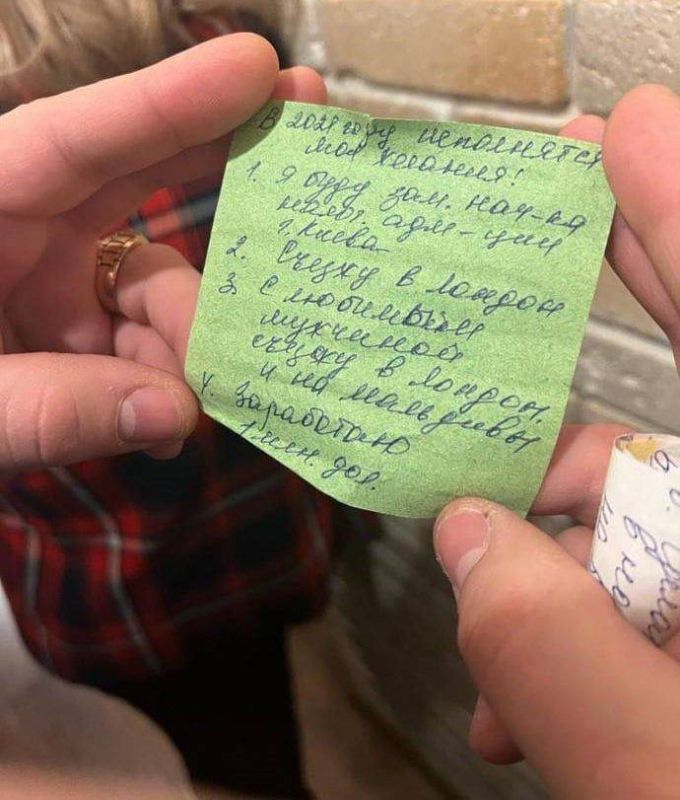 В 2021 году исполнятся
мои желания!
1. Я буду зам. нач-ка
налог. адм-ции
г. Киева
2. Съезжу в Лондон
3. С любимым
мужчиной
съезжу в Лондон
и на Мальдивы
4. Заработаю
1 млн. дол.